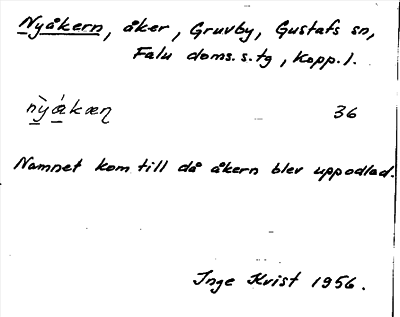 Nyåkern, åker, Gruvby, Gustafs sn,
Falu doms.s.tg, Kopp.l.
36
Namnet kom till då åkern blev uppodlad.
Inge Kvist 1956.